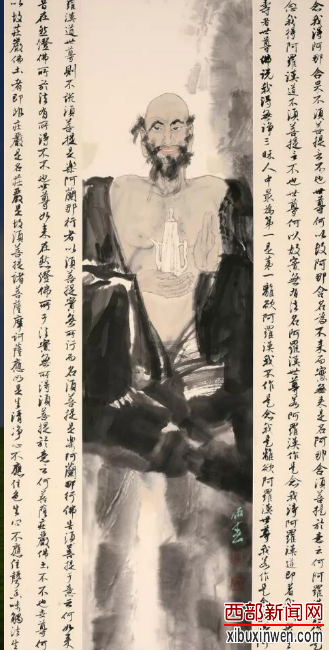 念我得阿那含果不須菩提言不也世尊何以故阿那含名為不來而實無來是名阿那含須菩提於意云何阿羅漢能作是
念我得阿羅漢道不須菩提言不也世尊何以故實無有法名阿羅漢世尊若阿羅漢作是念我得阿羅漢道即著
壽者世尊佛說我得無諍三昧人中最為第一是第一離欲阿羅漢我不作是念我是離欲阿羅漢世尊我若作是念我
羅漢道世尊則不說須菩提是樂阿蘭那行者以須菩提實無所行而名須菩提是樂阿蘭那行佛告須菩提於意云何如來
昔在然燈佛所於法有所得不不也世尊如來在然燈佛所於法實無所得須菩提於意云何菩薩莊嚴佛土不不也世尊何
以故莊嚴佛土者即非莊嚴是名莊嚴是故須菩提諸菩薩摩訶薩應如是生清淨心不應住色生心不應住聲香味觸法生
西部新闻网
xibuxinwen.com